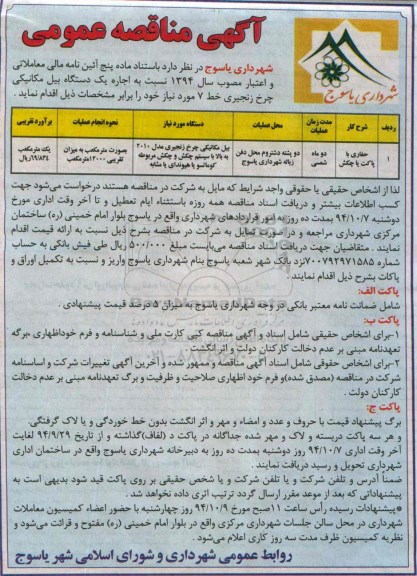 آگهی مناقصه عمومی
شهرداری یاسوج
شهرداری یاسوج در نظر دارد باستناد ماده پنج آئین نامه مالی معاملاتی
و اعتبار مصوب سال ۱۳۹۴ نسبت به اجاره یک دستگاه بیل مکانیکی
چرخ زنجیری خط ۷ مورد نیاز خود را برابر مشخصات ذیل اقدام نماید.
ردیف شرح کار مدت زمان عملیات محل عملیات دستگاه مورد نیاز نحوه انجام عملیات برآورد تقریبی
۱ حفاری با پاکت یا چکش دو ماه شمسی دو پشته دشتروم محل دفن زباله شهرداری یاسوج بیل مکانیکی چرخ زنجیری مدل ۲۰۱۰ به بالا با سیستم چکش و چکش مربوطه کوماتسو یا هیوندای یا مشابه بصورت مترمکعب به میزان تقریبی ۱۲۰۰۰مترمکعب یک مترمکعب
لذا از اشخاص حقیقی یا حقوقی واجد شرایط که مایل به شرکت در مناقصه هستند درخواست می‌شود جهت
کسب اطلاعات بیشتر و دریافت اسناد مناقصه همه روزه باستثناء ایام تعطیل و تا آخر وقت اداری مورخ
دوشنبه ۹۴/۱۰/۷ بمدت ده روزبه امور قراردادهای شهرداری واقع در یاسوج بلوار امام خمینی (ره) ساختمان
مرکزی شهرداری مراجعه و درصورت تمایل به شرکت در مناقصه بشرح ذیل نسبت به ارائه قیمت اقدام
نمایند . متقاضیان جهت دریافت اسناد مناقصه می‌بایست مبلغ ۵۰۰/۰۰۰ ریال طی فیش بانکی به حساب
شماره ۷۰۰۷۹۲۹۷۱۵۸۵نزد بانک شهر شعبه یاسوج بنام شهرداری یاسوج واریز و نسبت به تکمیل اوراق و
پاکات بشرح ذیل اقدام نمایند .
پاکت الف:
شامل ضمانت نامه معتبر بانکی در وجه شهرداری یاسوج به میزان ۵ درصد قیمت پیشنهادی .
پاکت ب:
۱-برای اشخاص حقیقی شامل اسناد و آگهی مناقصه کپی کارت ملی و شناسنامه و فرم خوداظهاری ،برگه
تعهدنامه مبنی بر عدم دخالت کارکنان دولت و اثر انگشت
۲-برای اشخاص حقوقی شامل اسناد و آگهی مناقصه و ممهور شده و آخرین آگهی تغییرات شرکت و اساسنامه
شرکت در مناقصه (مصدق شده)و فرم خود اظهاری صلاحیت و ظرفیت و برگ تعهدنامه مبنی بر عدم دخالت
کارکنان دولت.
پاکت ج:
برگ پیشنهاد قیمت با حروف و عدد و امضاء و مهر و اثر انگشت بدون خط خوردگی و یا لاک گرفتگی.
و هر سه پاکت دربسته و لاک و مهر شده جداگانه در پاکت د (لفاف)گذاشته و از تاریخ ۹۴/۹/۲۹ لغایت
آخر وقت اداری ۹۴/۱۰/۷ روز دوشنبه بمدت ده روز به دبیرخانه شهرداری یاسوج واقع در ساختمان اداری
شهرداری تحویل و رسید دریافت نمایند .
ضمنا آدرس و تلفن شرکت و یا تلفن شرکت و یا شخص حقیقی بر روی پاکت قید شود بدیهی است به
پیشنهاداتی که بعد از موعد مقرر ارسال گردد ترتیب اثری داده نخواهد شد .
*پیشنهادات رسیده رأس ساعت ۱۱صبح مورخ ۹۴/۱۰/۹ روز چهارشنبه با حضور اعضاء کمیسیون معاملات
شهرداری در محل سالن جلسات شهرداری مرکزی واقع در بلوار امام خمینی (ره) مفتوح و قرائت می‌شود و
نظریه کمیسیون ظرف مدت سه روز کاری اعلام می‌شود .
روابط عمومی شهرداری و شورای اسلامی شهر یاسوج